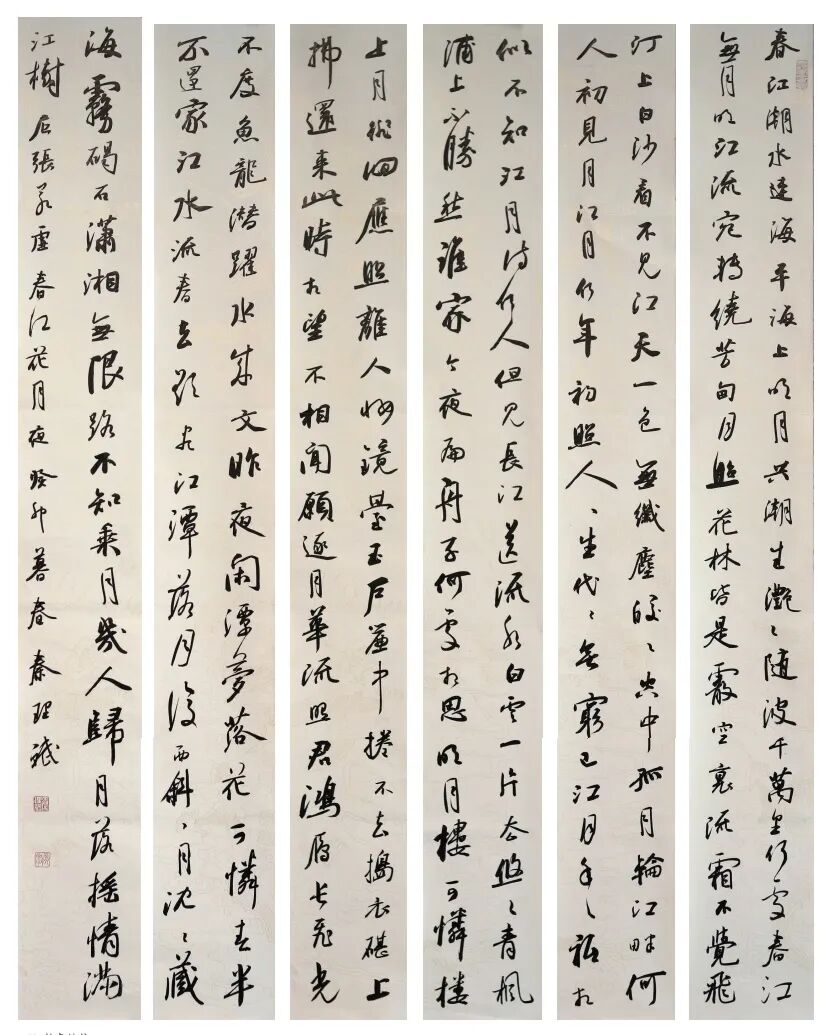 春江潮水連海平海上明月共潮生灧〻隨波千萬里何處春江
無月明江流宛轉繞芳甸月照花林皆是霰空裏流霜不覺飛
汀上白沙看不見江天一色無纖塵皎〻空中孤月輪江畔何
人初見月江月何年初照人〻生代〻無窮已江月年〻祗相
似不知江月待何人但見長江送流水白雲一片去悠〻青楓
浦上不勝愁誰家今夜扁舟子何處相思明月樓可憐樓
上月徘徊應照離人妝鏡臺玉戶簾中捲不去搗衣砧上
拂還來此時相望不相聞願逐月華流照君鴻雁長飛光
不度魚龍潛躍水成文昨夜閑潭夢落花可憐春半
不還家江水流春去欲盡江潭落月復西斜〻月沈〻藏
海霧碣石瀟湘無限路不知乘月幾人歸月落搖情滿
江樹 右張若虛春江花月夜癸卯暮春秦理斌